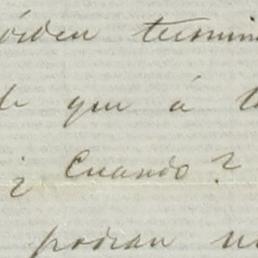 órden termin
de que á t
¿Cuando?
podian